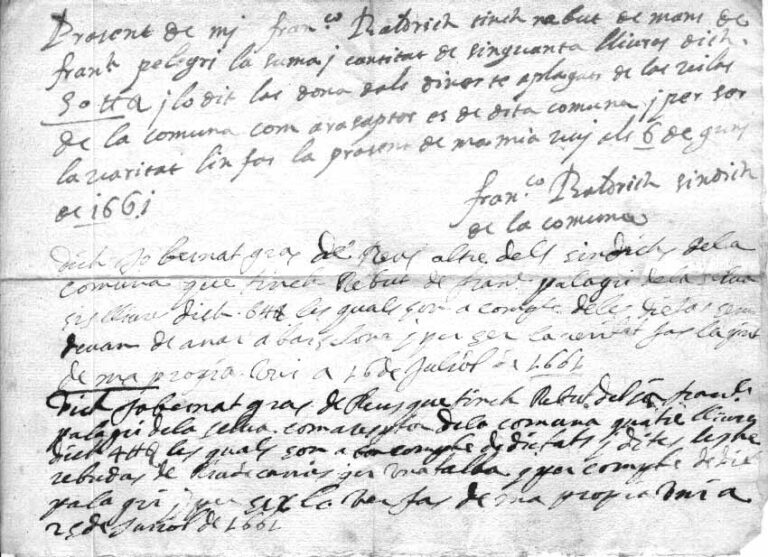 Present de mj fran.co Baldrich tinch rabut de mans de
fran.h pelegri la suma j cantitat de sinquanta lliures dich
50 ℔ j lo dit las dona dels diners te aplagats de las vilas
de la comuna com a rasaptor es de dita comuna j per ser
la varitat lin fas la present de ma mia vuj als 6 de juny
de 1661
fran.co Baldrich sindich
de la comuna
Dich jo bernat gras de Reus altre dels sindichs de la
comuna que tinch Rebut de fran.h palagri de la selva
sis lliures dich 6 ℔ les quals son a compte de les dietas
de anar a barselona j per ser la veritat fas la pnt
de ma propia vui a 16 de Juliol de 1661
Dich jo bernat gras de Reus que tinch Rebut del fran.h
palagri de la selva com a reseptor de la comuna quatre lliures
dich 4 ℔ les quals son a bon compte de dietas j dites les he
rebudas de Riudecanies per j per compte de dit
palagri j per ser la ver fas de ma propia vui a
25 de Juliol de 1661